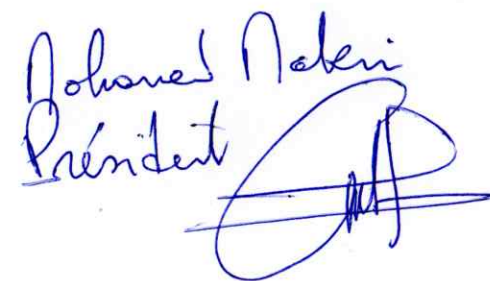 Mohamed Materi
Président